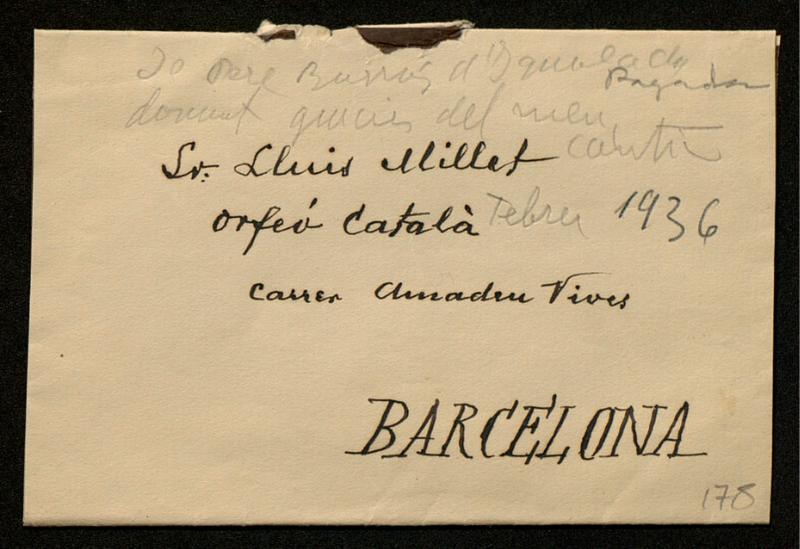 Pere Borrás d'Igualada
donant gracies del meu
Sr. Lluis Millet
Orfeó Català Febrer 1936
Carrer Amadeu Vives
BARCELONA
178